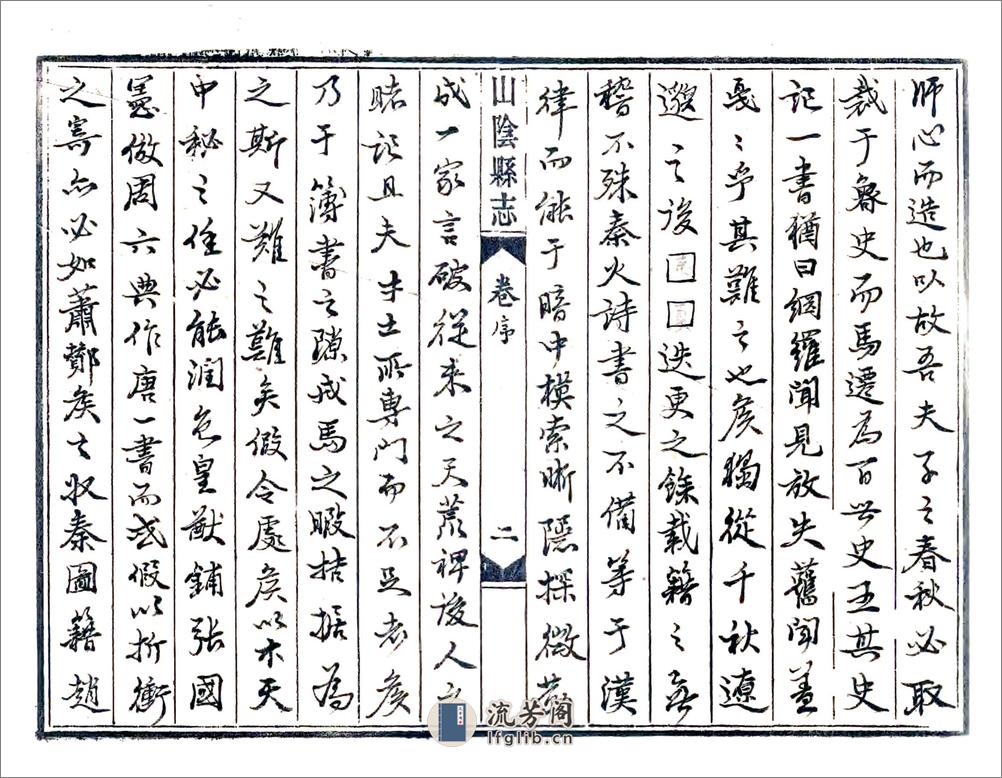 師心而造也以故吾夫子之春秋必取
裁于魯史而馬遷為百世史王其史
記一書猶曰網羅聞見放失舊聞蓋
戛戛乎其難之也矦獨從千秋遼
邈之後迭更之餘載籍之無
稽不殊秦火詩書之不備等于漢
律而能于暗中模索晰隱探微
山陰縣志
卷序
二
成一家言破從来之天荒裨後人
睹記且夫才士所專門而不足者矦
乃于簿書之隙戎馬之暇拮据為
之斯又難之難矣假令處矦以木天
中秘之任必能潤色皇猷鋪張國
憲倣周六典作唐一書而或假以折衝
之寄亦必如蕭酇矦之収秦圖籍趙
流芳阁
lfglib.cn